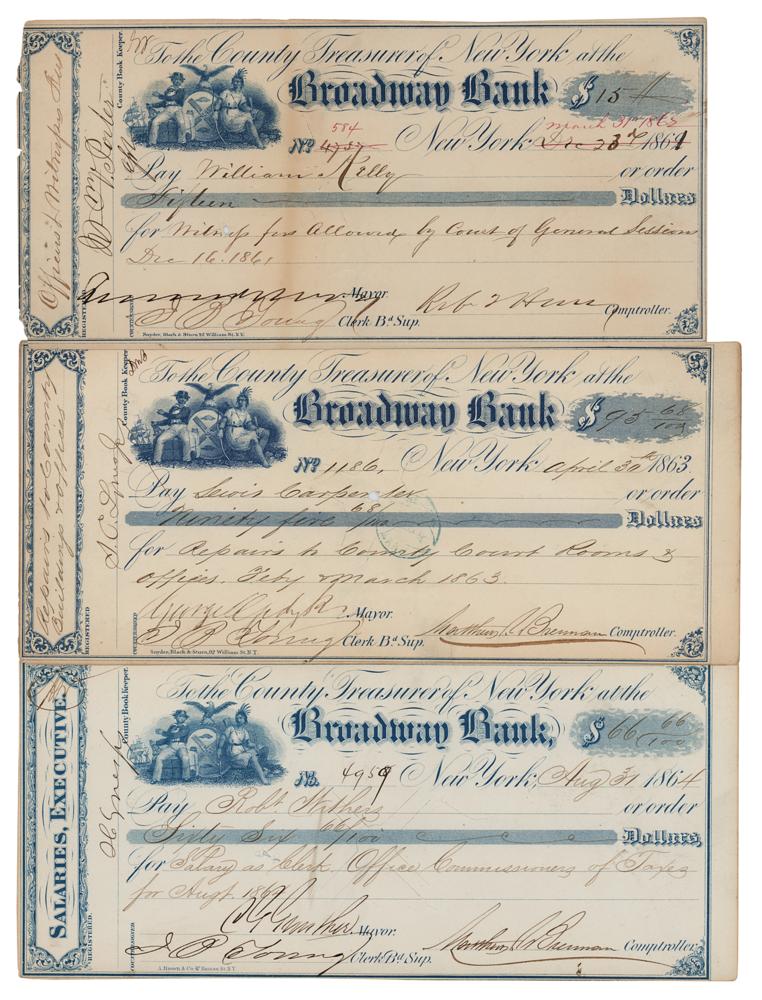 Officers & Witness Fees
County Book Keeper.
To the County Treasurer of New York at the
Broadway Bank $ 15
584 March 31st 1862
No 4757 New York Dec 23d 1861
Pay William Kelly or order
Fifteen Dollars
for Witness fees Allowed by Court of General Sessions
Dec 16. 1861
Mayor.
I B Young Clerk Bd Sup. Comptroller.
REGISTERED
COUNTERSIGNED
Snyder, Black & Sturn, 92 William St. N.Y.
Repairs to County
Buildings & offices
County Book Keeper
To the County Treasurer of New York at the
Broadway Bank $ 95 68/100
No 1186, New York April 30th 1863.
Pay Lewis Carpenter or order
Ninety five 68/100 Dollars
for Repairs to County Court Rooms &
offices. Feby & March 1863.
George Opdyke Mayor.
I B Young Clerk Bd Sup. Matthew T. Brennan Comptroller.
REGISTERED
COUNTERSIGNED
Snyder, Black & Sturn, 92 William St. N.Y.
SALARIES, EXECUTIVE.
County Book Keeper.
To the County Treasurer of New York at the
Broadway Bank, $ 66 66/100
No. 4959 New York, Aug 31 1864
Pay Robt Withers or order
Sixty Six 66/100 Dollars
for Salary as Clerk, Office Commissioners of Taxes
for Augt 1864
C G Gunther Mayor.
I B Young Clerk Bd Sup. Matthew T. Brennan Comptroller
REGISTERED.
COUNTERSIGNED
A. Brown & Co. 47 Nassau St. N.Y.